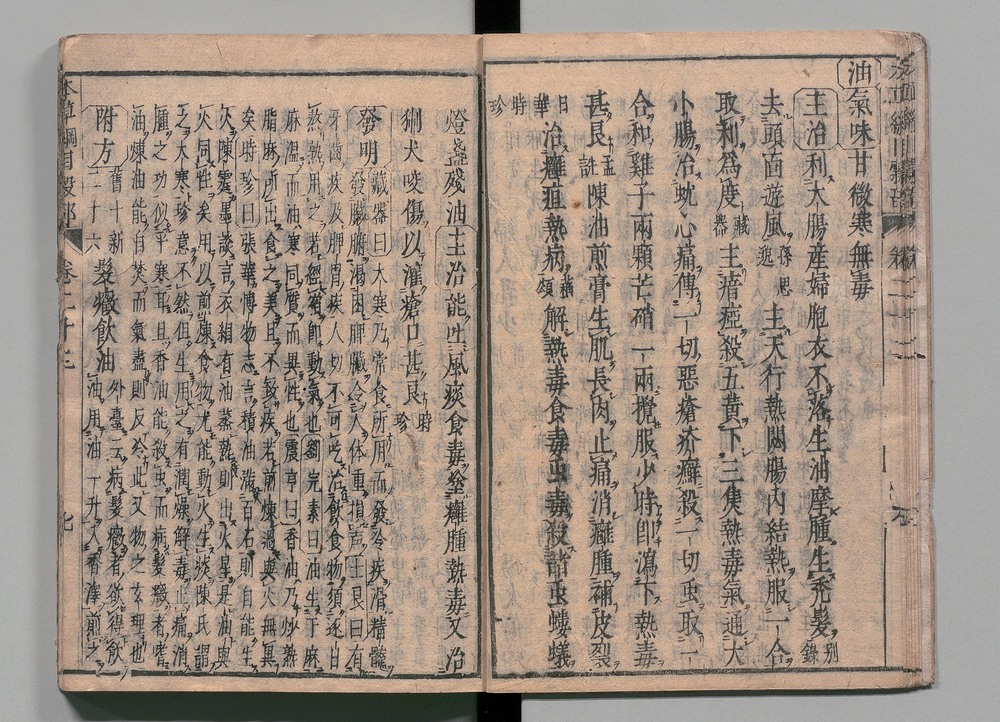 油氣味甘微寒無毒
主治利大腸産婦胞衣不落生油摩腫生禿髮別錄
去頭面遊風孫思邈主天行熱閟腸內結熱服一合
取利爲度藏器主瘖瘂殺五黃下三焦熱毒氣通大
小腸治蚘心痛傅一切惡瘡疥癬殺一切虫取一
合和雞子兩顆芒硝一兩攪服少時即瀉下熱毒
甚良孟詵陳油煎膏生肌長肉止痛消癰腫補皮裂
日華治癰疽熱病蘇頌解熱毒食毒虫毒殺諸虫螻蟻
時珍
燈盞殘油主治能吐風痰食毒塗癰腫熱毒又治
猘犬咬傷以灌瘡口甚良時珍
發明藏器曰大寒乃常食所用而發冷疾滑精髓
發臟腑渴困脾臟令人体重損声士良曰有
牙齒疾及脾胃疾人切不可吃治飲食物須逐日
熬熟用之若經宿即動氣也劉完素曰油生于麻
麻溫而油寒同質而異性也震亨曰香油乃炒熟
脂麻所出食之美且不致疾若煎煉過與火無異
矣時珍曰張華博物志言積油滿百石則自能生
火陳霆墨談言衣絹有油蒸熱則出火星是油與
火同性矣用以煎煉食物尤能動火生痰陳氏謂
之大寒珍意不然但生用之有潤燥解毒止痛消
腫之功似乎寒耳且香油能殺虫而病髮癥者嗜
油煉油能自焚而氣盡則反冷此又物之玄理也
附方舊十新二十六髮癥飲油外臺云病髮癥者欲得飲
油用油一升入香澤煎之
本草綱目穀部 卷二十二 七